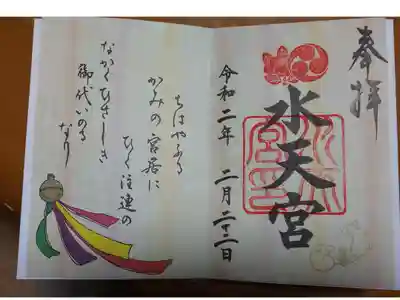 奉拝
水天宮
令和二年 二月二十二日
ちはやふる
かみの宮居に
ひく注連の
なかくひさしき
御代いのる
なり